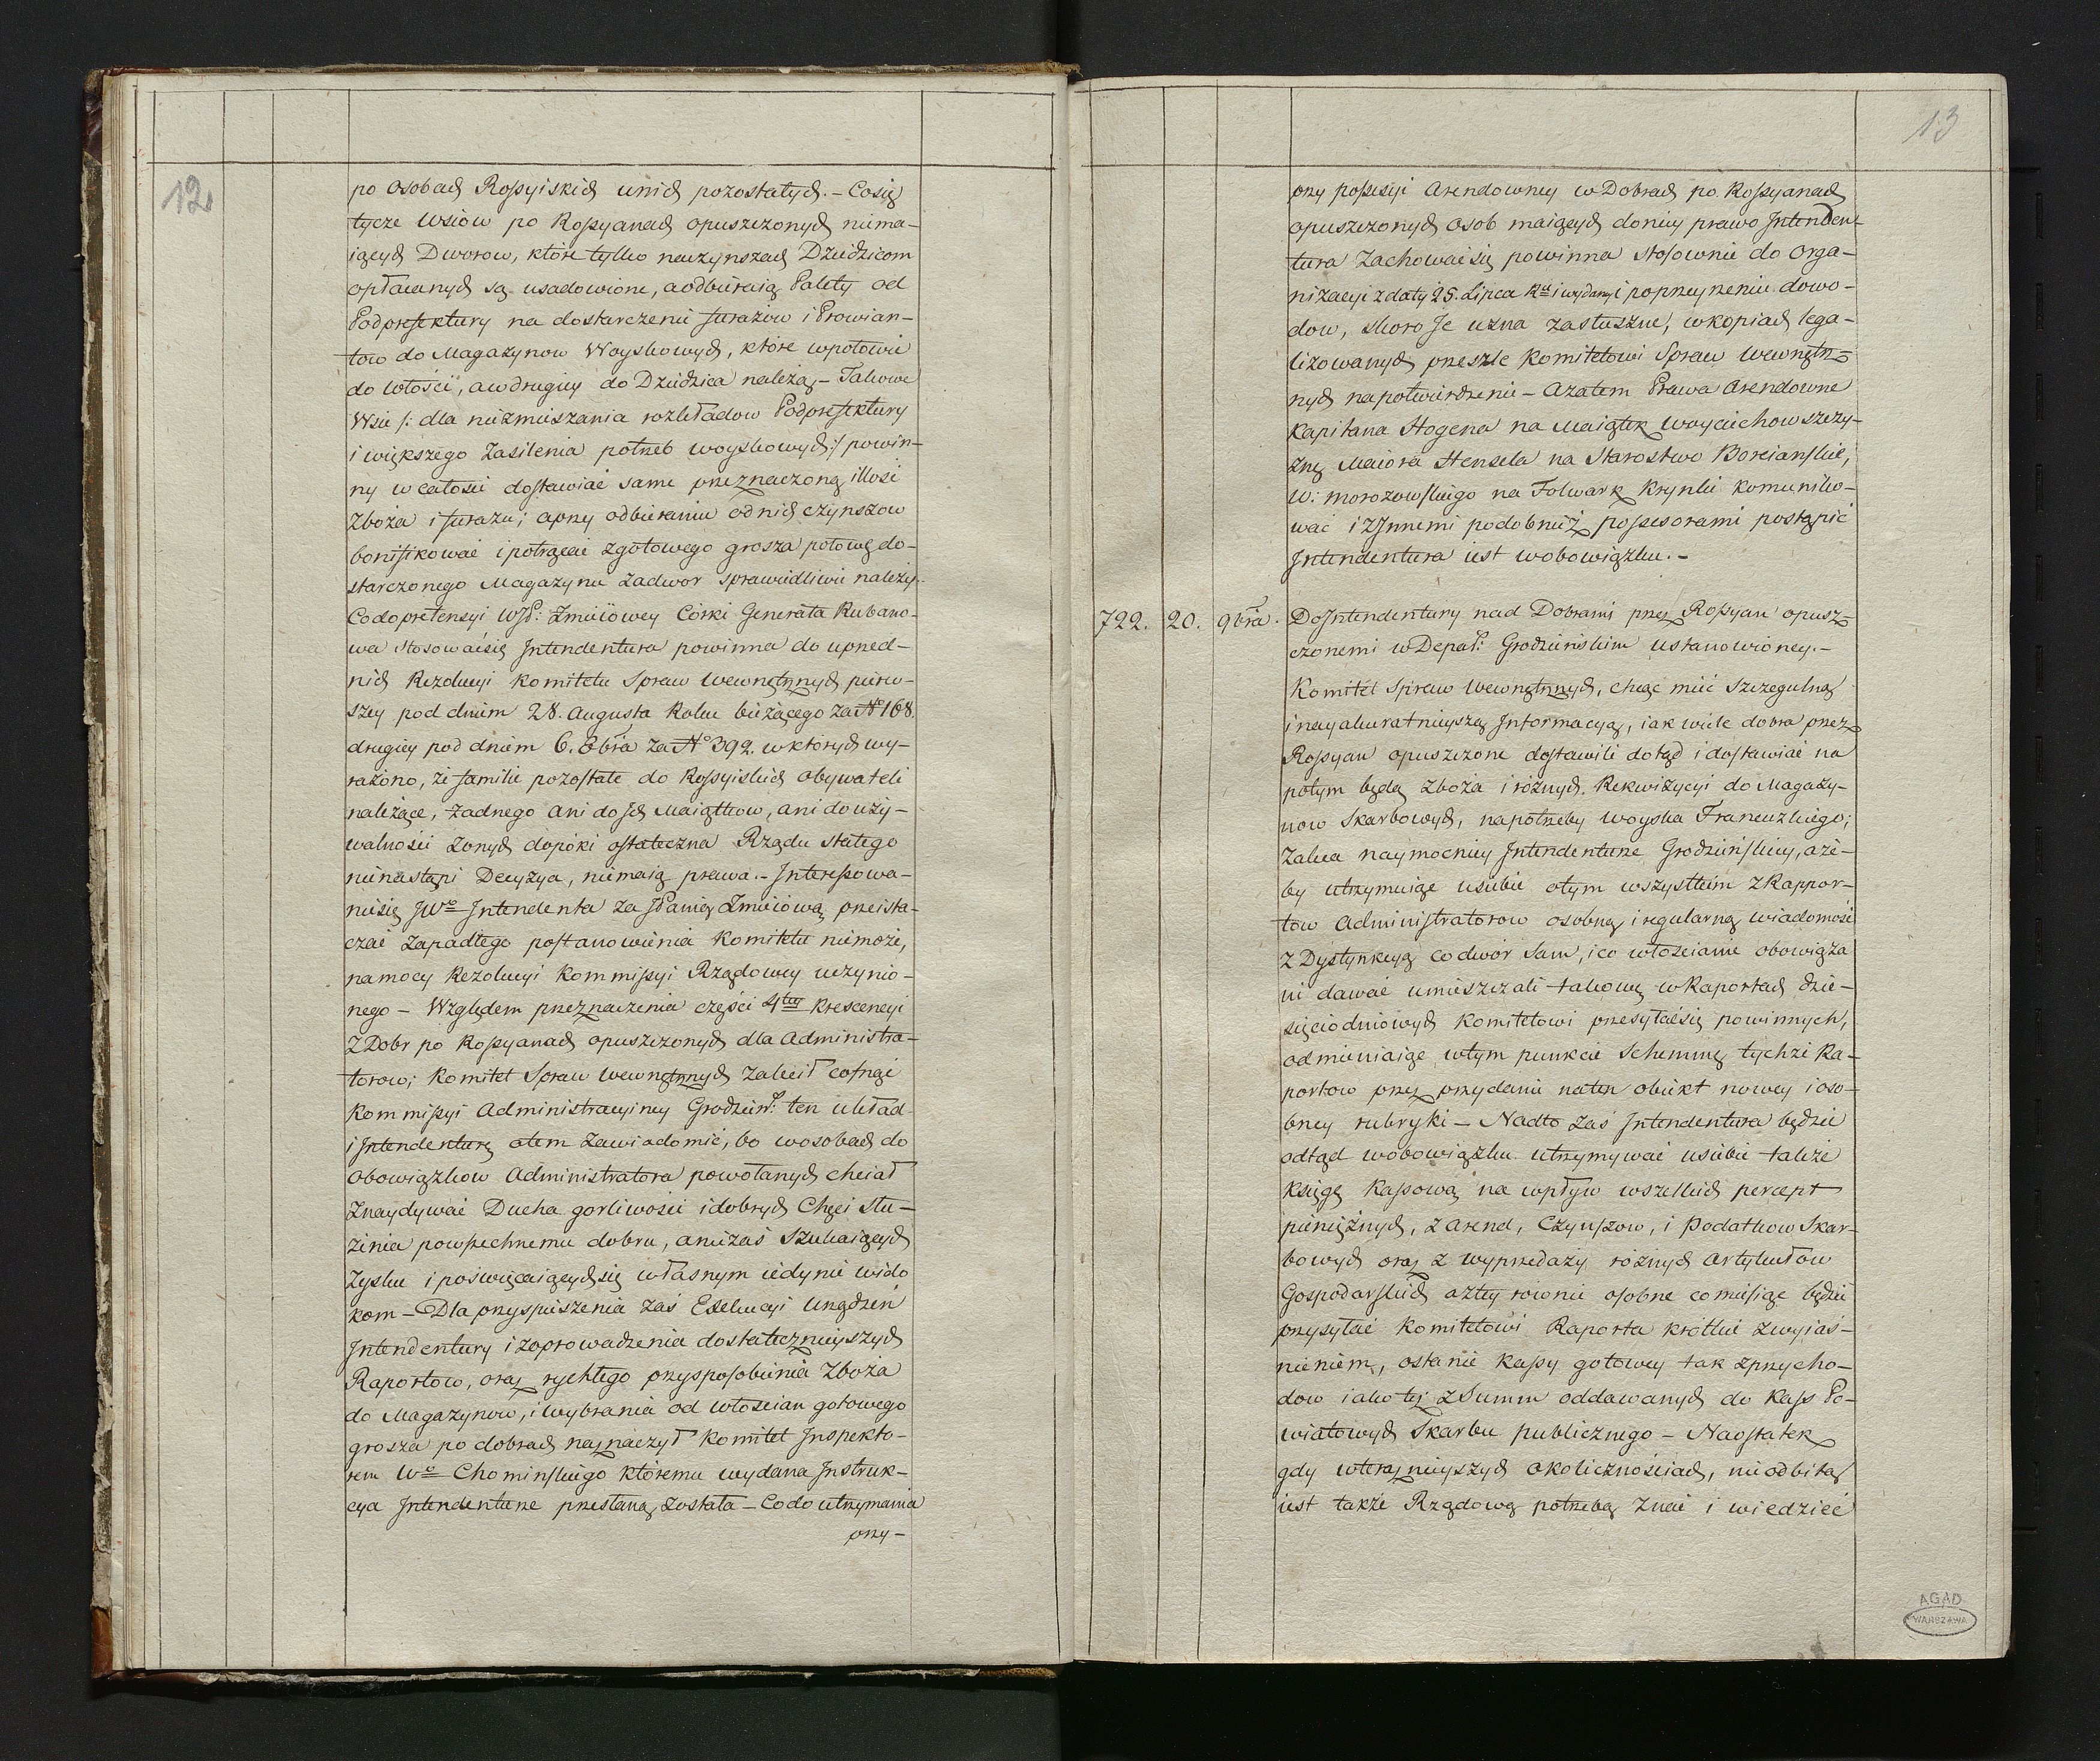 12.
po osobach Rossyiskich unich pozostałych. – Cosię
tycze Wsiów po Rossyanach opuszczonych niema-
iących Dworow, które tylko naczynszach Dziedzicom
opłacanych są usadowione, aodbieraią Palety od
Podprefektury na dostarczenie furażow i Prowian-
tow do Magazynow Woyskowych, które wpołowie
do Włości, awdrugiey do Dziedzica należą – Takowe
Wsie /: dla niezmieszania rozkładow Podprefektury
i większego Zasilenia potrzeb woyskowych :/ powin-
ny wcałości dostawiać same przeznaczoną illość
Zboża i furażu; aprzy odbieraniu odnich czynszow
bonifikować ipotrącać zgotowego grosza połowę do-
starczonego Magazynu zadwor sprawiedliwie należy.
Codopretensyi WJP: Zmiiowey Córki Generała Rubano-
wa Stosowaćsię Intendentura powinna do uprzed-
nich Rezolucyi Komitetu Spraw Wewnętrznych pierw-
szey pod dniem 28. Augusta Roku bieżącego za No 168.
drugiey pod dniem 6. 8bra za No 392. wktórych wy-
rażono, że familie pozostałe do Rossyiskich obywateli
należące, żadnego ani do Ich Maiątkow, ani do uży-
walności zonych dopóki ostateczna Rządu stałego
nienastąpi Decyzya, niemaią prawa. – Interessowa-
niesię JWo Intendenta za JPanią Zmiiową przeista-
czać zapadłego postanowienia Komitetu niemoże,
namocy Rezolucyi Kommissyi Rządowey uczynio-
nego – Względem przeznaczenia części 4tey Krescencyi
z Dobr po Rossyanach opuszczonych dla Administra-
torow; Komitet Spraw Wewnętrznych zalecił cofnąć
Kommissyi Administracyiney Grodzień: ten układ
i Intendenturę otem zawiadomić, bo wosobach do
obowiązkow Administratora powołanych chciał
znaydywać Ducha gorliwości idobrych Chęci słu-
żenia powszechnemu dobru, anieżaś szukaiących
Zysku i poświęcaiącychsię własnym iedynie wido
kom – Dla przyspieszenia zaś Exekucyi Urządzeń
Intendentury i zaprowadzenia dostatecznieyszych
Raportow, oraz rychłego przysposobienia Zboża
do Magazynow, i wybrania od włościan gotowego
grosza po dobrach naznaczył Komitet Inspekto-
rem Wo Chominskiego któremu wydana Instruk-
cya Intendenturze przesłaną została – Codo utrzymania
przy-
13
przy possessyi Arendowney w Dobrach po Rossyanach
opuszczonych osob maiących doniey prawo Intenden-
tura Zachowaćsię powinna stosownie do Orga-
nizacyi zdaty 25. Lipca Ru i wydaney i poprzeyrzeniu dowo-
dow, skoro Je uzna zasłuszne, wkopiach lega-
lizowanych prześle Komitetowi Spraw Wewnętrz-
nych napotwierdzenie – Azatem Prawa Arendowne
Kapitana Hogena na Maiątek Woyciechowszczy-
znę Maiora Stensela na Starostwo Borciańskie,
W: Morozowskiego na Folwark Krynki komuniko-
wać i zInnemi podobnież possessorami postąpić
Intendentura iest wobowiązku. –
722. 20. 9bra. Do Intendentury nad Dobrami przez Rossyan opusz-
czonemi w Depart: Grodzieńskim ustanowioney. –
Komitet Spraw Wewnętrznych, chcąc mieć szczegulną
i nayakuratnieyszą Informacyą, iak wiele dobra przez
Rossyan opuszczone dostawili dotąd i dostawiać na
potym będą zboża i różnych Rekwizycyi do Magazy-
now Skarbowych, napotrzeby woyska Francuzkiego;
Zaleca naymocniey Intendenturze Grodzieńskiey, aże-
by utrzymuiąc usiebie otym wszystkim z Rappor-
tow Administratorow osobną i regularną wiadomość
z Dystynkcyą co dwór sam, ico włościanie obowiąza
ni dawać umieszczali takową w Raportach dzie-
sięciodniowych Komitetowi przesyłaćsię powinnych,
odmieniaiąc wtym punkcie Schemmę tychże Ra-
portow przez przydanie naten obiekt nowey ioso-
bney rubryki – Nadto zaś Intendentura będzie
odtąd wobowiązku utrzymywać usiebie także
Księgę Kassową na wpływ wszelkich percept
pieniężnych, z Arend, Czynszow, i Podatkow Skar-
bowych oraz z wyprzedaży różnych artykułow
Gospodarskich aztey rownie osobne comiesiąc będzie
przysyłać Komitetowi Raporta krótkie zwyiaś-
nieniem, ostanie Kassy gotowey tak zprzycho-
dow iakoteż z Summ oddawanych do Kass Po-
wiatowych Skarbu publicznego – Naostatek
gdy wteraznieyszych okolicznościach, nieodbitą
iest także Rządową potrzebą znać i wiedzieć
AGAD
WARSZAWA